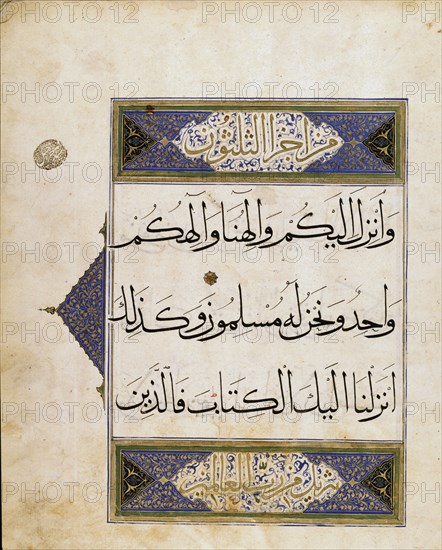 PHOTO12
من اجزا الثلثون
وَأُنْزِلَ اِلَيْكُمْ وَاِلٰهُنَا وَاِلٰهُكُمْ
وَاحِدٌ وَنَحْنُ لَهُ مُسْلِمُونَ وَكَذٰلِكَ
اَنْزَلْنَا اِلَيْكَ الْكِتَابَ فَالَّذِينَ
تنزيل من رب العالمين